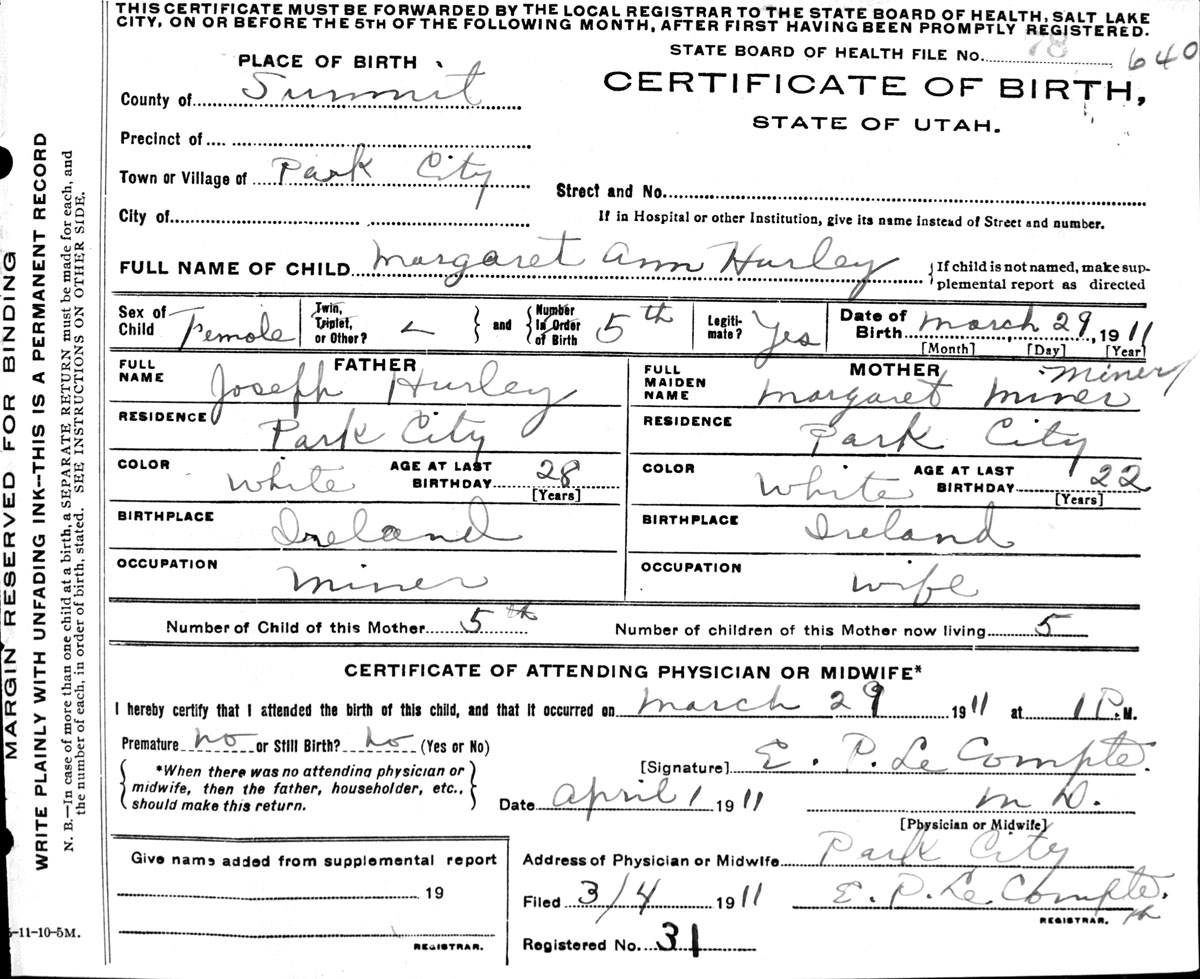 THIS CERTIFICATE MUST BE FORWARDED BY THE LOCAL REGISTRAR TO THE STATE BOARD OF HEALTH, SALT LAKE
CITY, ON OR BEFORE THE 5TH OF THE FOLLOWING MONTH, AFTER FIRST HAVING BEEN PROMPTLY REGISTERED.
STATE BOARD OF HEALTH FILE No. 78 640
PLACE OF BIRTH
CERTIFICATE OF BIRTH,
STATE OF UTAH.
County of Summit
Precinct of
Town or Village of Park City
Street and No.
City of
If in Hospital or other Institution, give its name instead of Street and number.
FULL NAME OF CHILD Margaret Ann Hurley
If child is not named, make sup-
plemental report as directed
Sex of Child Female
Twin, Triplet, or Other?
and
Number in Order of Birth 5th
Legiti-mate? Yes
Date of Birth March 29, 1911
[Month] [Day] [Year]
FATHER
FULL NAME Joseph Hurley
MOTHER
Miner
FULL MAIDEN NAME Margaret Miner
RESIDENCE Park City
RESIDENCE Park City
COLOR White
AGE AT LAST BIRTHDAY 28
[Years]
COLOR White
AGE AT LAST BIRTHDAY 22
[Years]
BIRTHPLACE Ireland
BIRTHPLACE Ireland
OCCUPATION Miner
OCCUPATION Wife
Number of Child of this Mother 5th
Number of children of this Mother now living 5
CERTIFICATE OF ATTENDING PHYSICIAN OR MIDWIFE*
I hereby certify that I attended the birth of this child, and that it occurred on March 29 1911 at 1 P.M.
Premature No or Still Birth? No (Yes or No)
*When there was no attending physician or
midwife, then the father, householder, etc.,
should make this return.
[Signature] E. P. Le Compte.
Date April 1 1911
M D.
[Physician or Midwife]
Give name added from supplemental report
19
REGISTRAR.
Address of Physician or Midwife Park City
Filed 3/4 1911
E. P. Le Compte.
REGISTRAR.
Registered No. 31
-11-10-5M.
MARGIN RESERVED FOR BINDING
WRITE PLAINLY WITH UNFADING INK--THIS IS A PERMANENT RECORD
N. B.—In case of more than one child at a birth, a SEPARATE RETURN must be made for each, and
the number of each, in order of birth, stated. SEE INSTRUCTIONS ON OTHER SIDE.